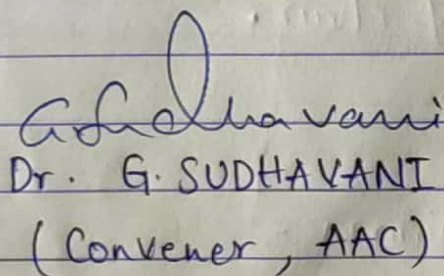 G. Sudhavani
Dr. G. SUDHAVANI
(Convener, AAC)